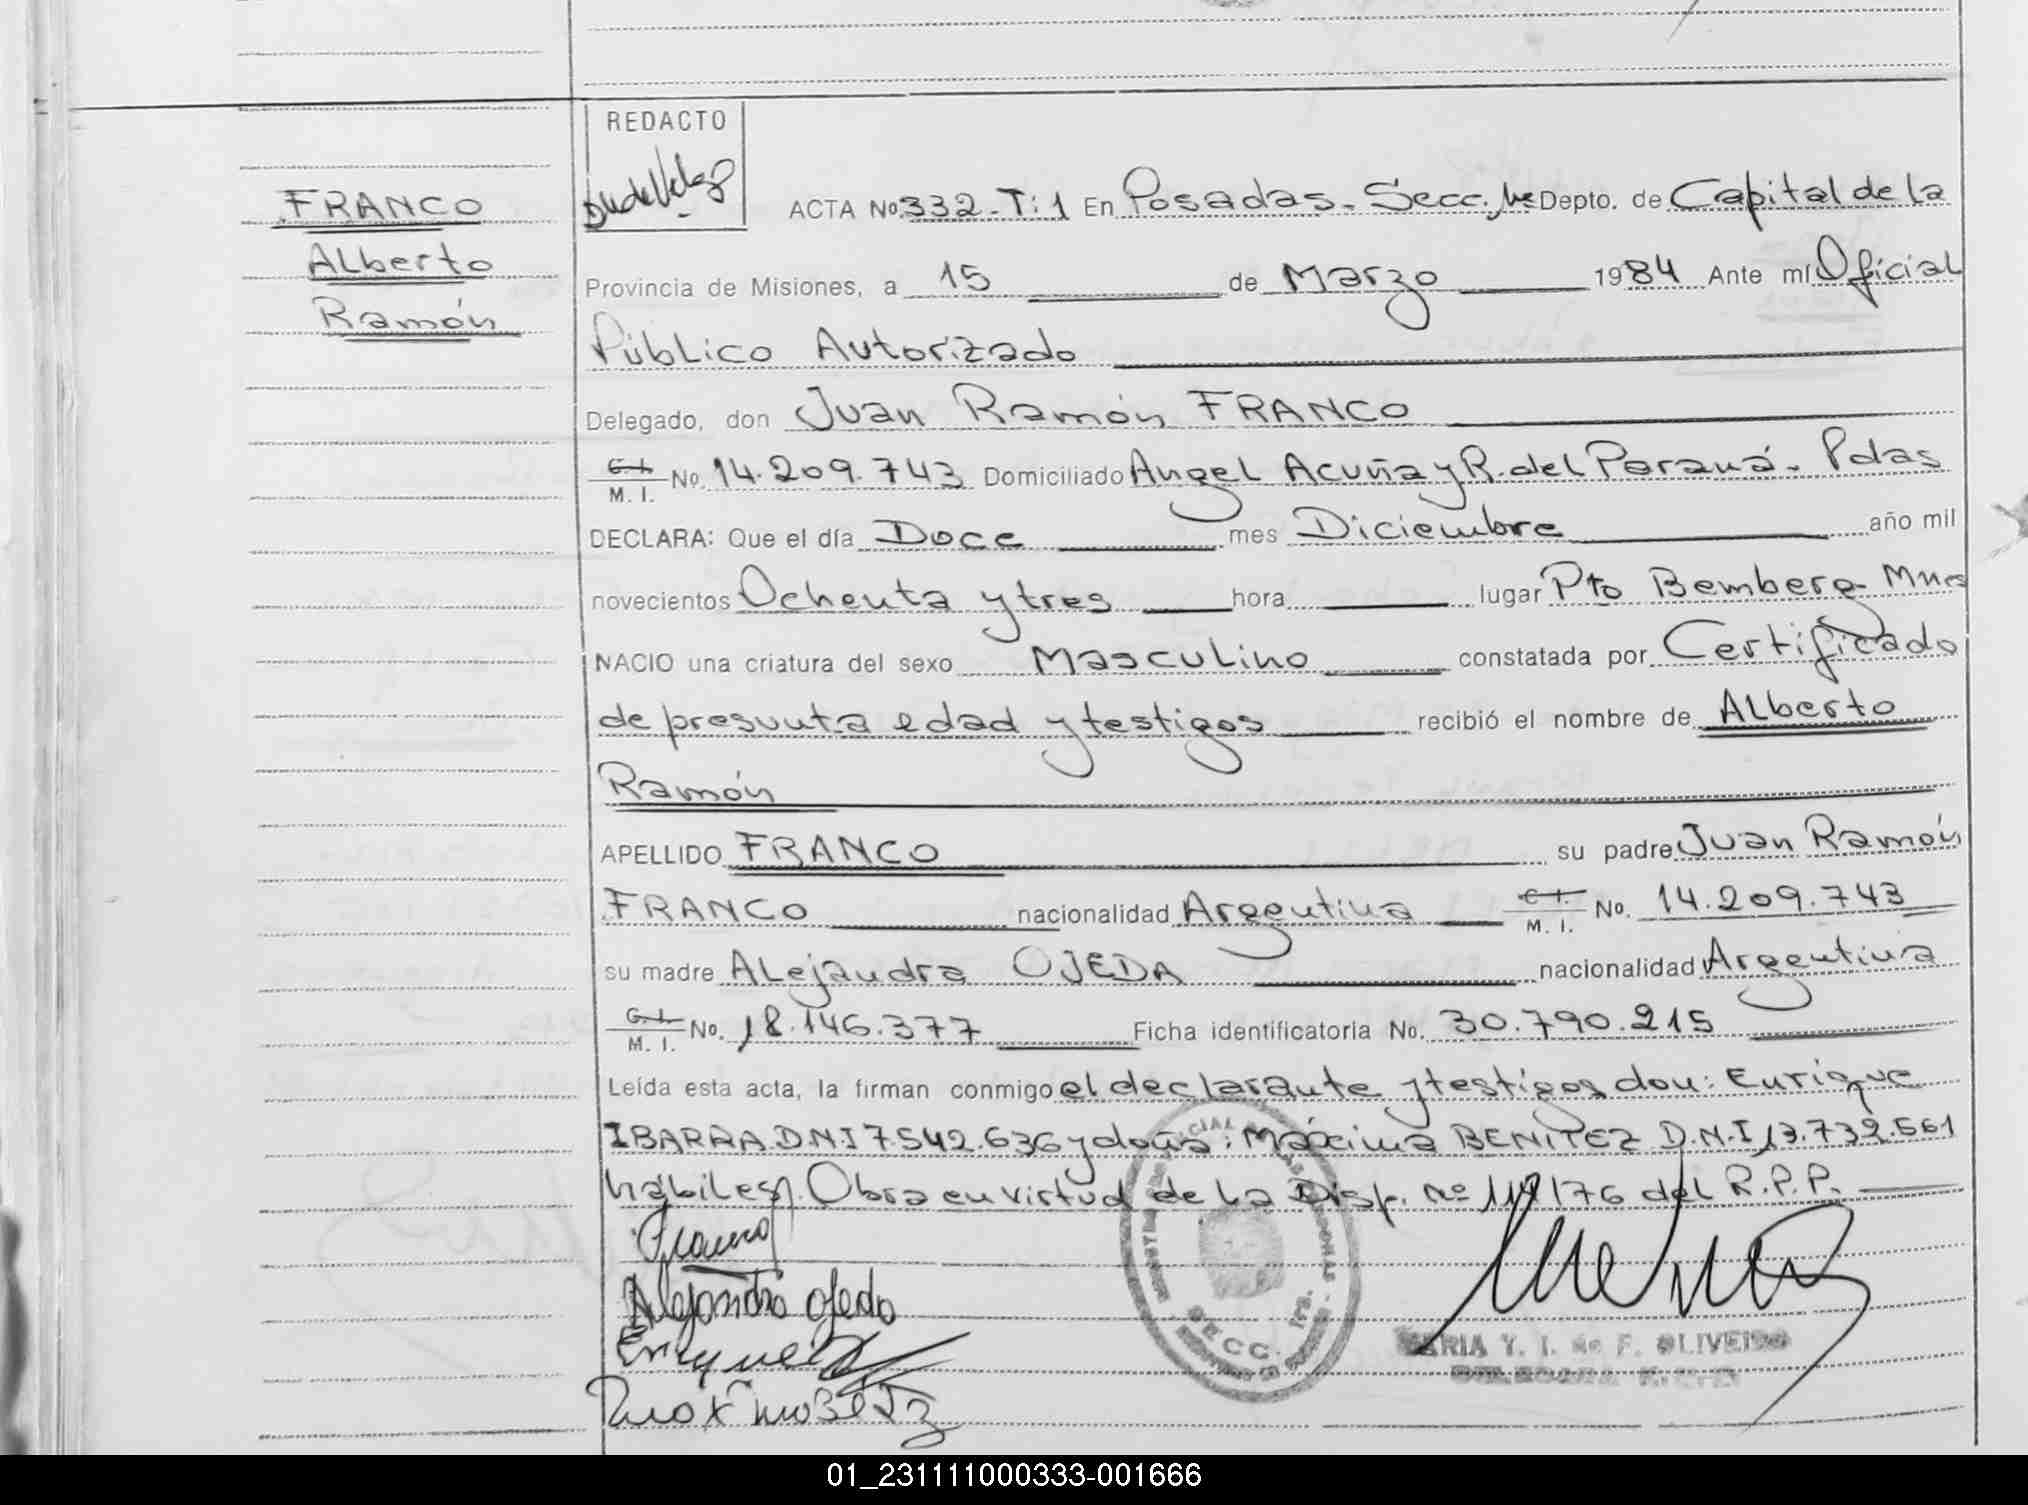 REDACTO
FRANCO
Alberto
Ramón
ACTA No 332-T:1 En Posadas-Secc. Depto. de Capital de la
Provincia de Misiones, a 15 de Marzo 1984 Ante mí Oficial
Público Autorizado
Delegado, don Juan Ramón FRANCO
C.I. M. I. No. 14.209.743 Domiciliado Angel Acuña y R. del Paraná - Pdas
DECLARA: Que el día Doce mes Diciembre año mil
novecientos Ochenta y tres hora lugar Pto Bemberg-Mnes
NACIO una criatura del sexo Masculino constatada por Certificado
de presunta edad y testigos recibió el nombre de Alberto
Ramón
APELLIDO FRANCO su padre Juan Ramón
FRANCO nacionalidad Argentina C.I. M. I. No. 14.209.743
su madre Alejandra OJEDA nacionalidad Argentina
C.I. M. I. No. 18.146.377 Ficha identificatoria No. 30.790.215
Leída esta acta, la firman conmigo el declarante y testigos don: Enrique
IBARRA D.N.I 7.542.636 y doña: Máxima BENITEZ D.N.I 13.732.561
hábiles. Obra en virtud de la Disp. Nº /76 del R.P.P.
Franco
Alejandra Ojeda
Enrique
SECC. 1ra.
MARIA Y. I. de F. OLIVEIRA
01_231111000333-001666